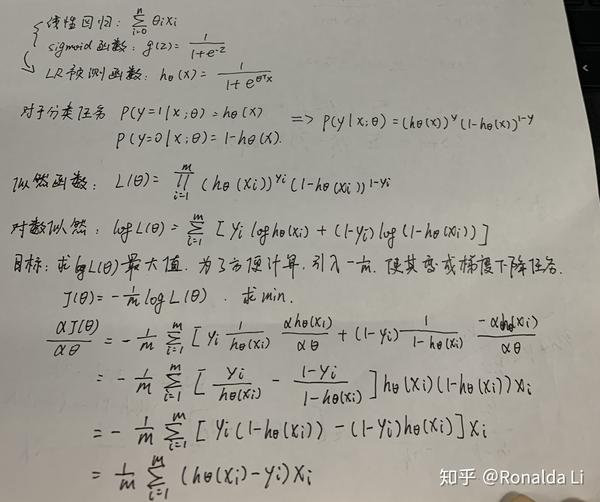 线性回归: ∑_{i=0}^{n} θixi
sigmoid 函数: g(z) = 1/(1+e^{-z})
LR预测函数: hθ(x) = 1/(1+e^{θᵀx})
对于分类任务 P(y=1|x;θ) = hθ(x) => P(y|x;θ) = (hθ(x))^y (1-hθ(x))^{1-y}
P(y=0|x;θ) = 1-hθ(x).
似然函数: L(θ) = ∏_{i=1}^{m} (hθ(xi))^{yi} (1-hθ(xi))^{1-yi}
对数似然: log L(θ) = ∑_{i=1}^{m} [yi log hθ(xi) + (1-yi) log (1-hθ(xi))]
目标: 求log L(θ)最大值. 为了方便计算, 引入 -1/m. 使其变成梯度下降任务.
J(θ) = -1/m log L(θ). 求min.
αJ(θ)/αθ = -1/m ∑_{i=1}^{m} [yi 1/hθ(xi) αhθ(xi)/αθ + (1-yi) 1/(1-hθ(xi)) -αhθ(xi)/αθ
= -1/m ∑_{i=1}^{m} [yi/hθ(xi) - (1-yi)/(1-hθ(xi))] hθ(xi)(1-hθ(xi)) xi
= -1/m ∑_{i=1}^{m} [yi(1-hθ(xi)) - (1-yi)hθ(xi)] xi
= 1/m ∑_{i=1}^{m} (hθ(xi)-yi) xi
知乎 @Ronalda Li